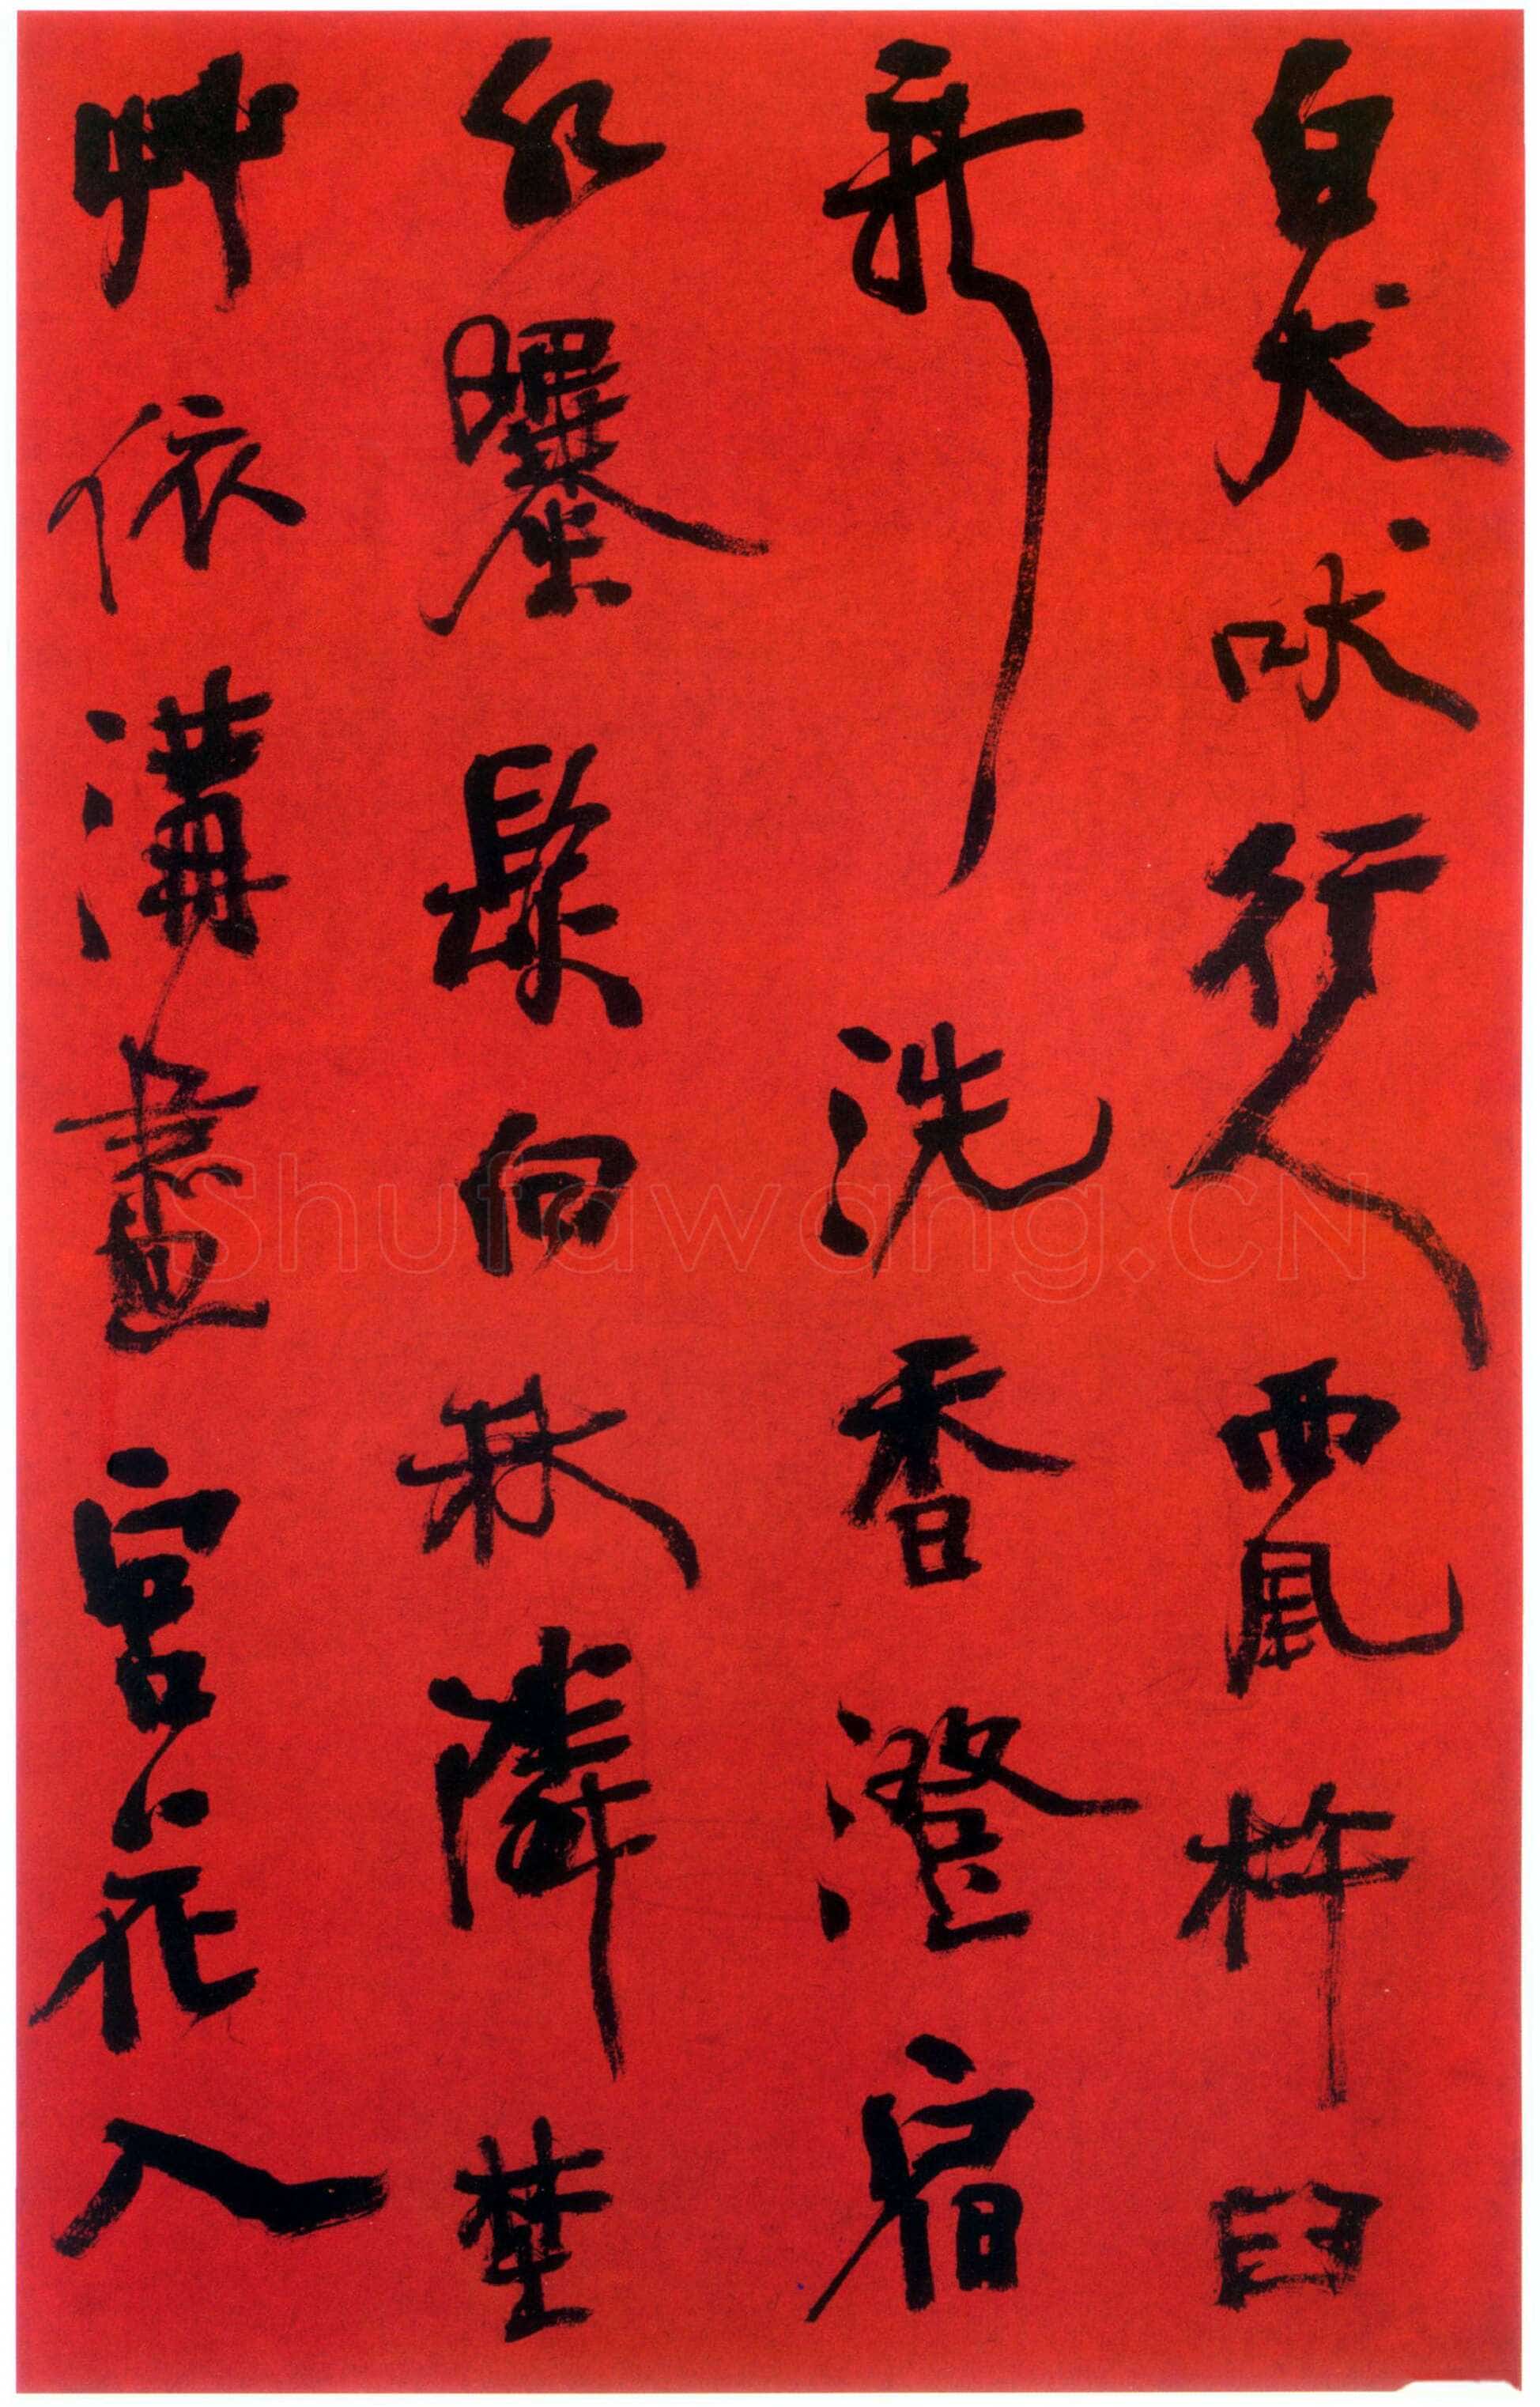 白犬吠行人西風杵臼
新洗香澄宿
紅曬髮向秋隣楚
艸依溝畫宮花入
Shufawang.CN